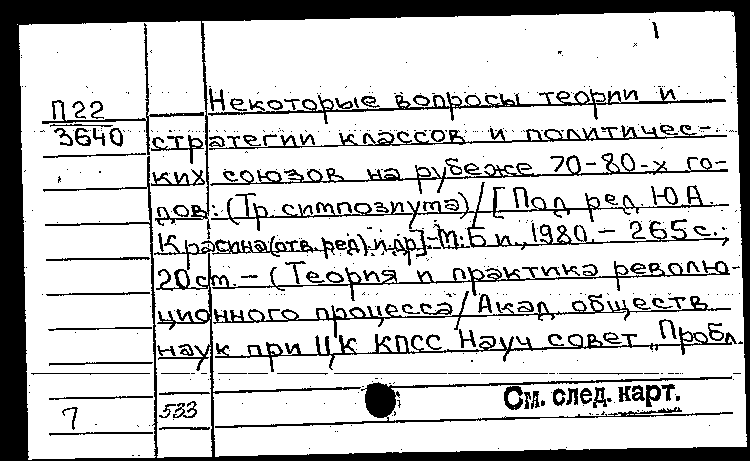 1
П22
3640
Некоторые вопросы теории и
стратегии классов и политичес-
ких союзов на рубеже 70-80-х го-
дов: (Тр. симпозиума) / [Под ред. Ю.А.
Красина (отв. ред.) и др.]. - М.: Б и., 1980. - 265 с.;
20 см. - (Теория и практика револю-
ционного процесса / Акад обществ
наук при ЦК КПСС Науч совет „Пробл.
7
533
См. след. карт.